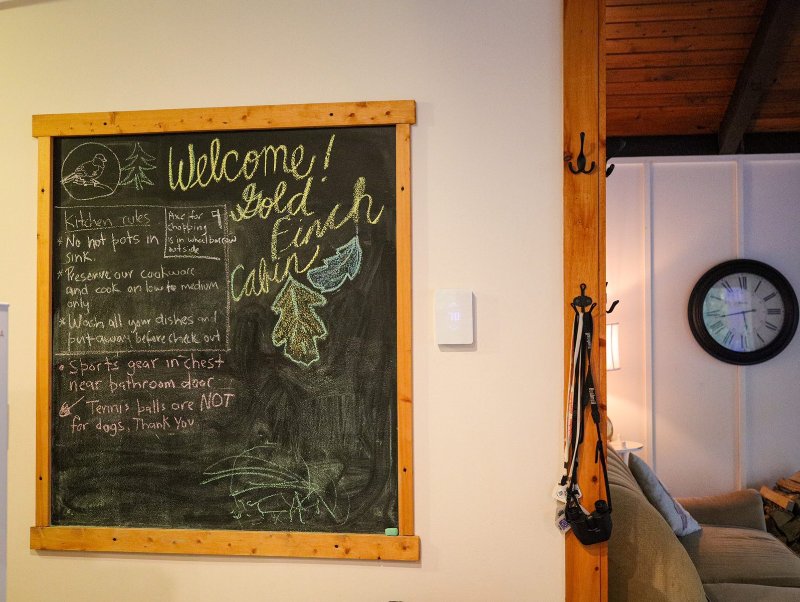 Welcome!
Gold
Finch
Cabin
Kitchen rules
* No hot pots in
sink.
* Preserve our cookware
and cook on low to medium
only
* Wash all your dishes and
put away before check out
Axe for
chopping
is in wheel barrow
outside
• Sports gear in chest
near bathroom door
Tennis balls are NOT
for dogs. Thank You
70